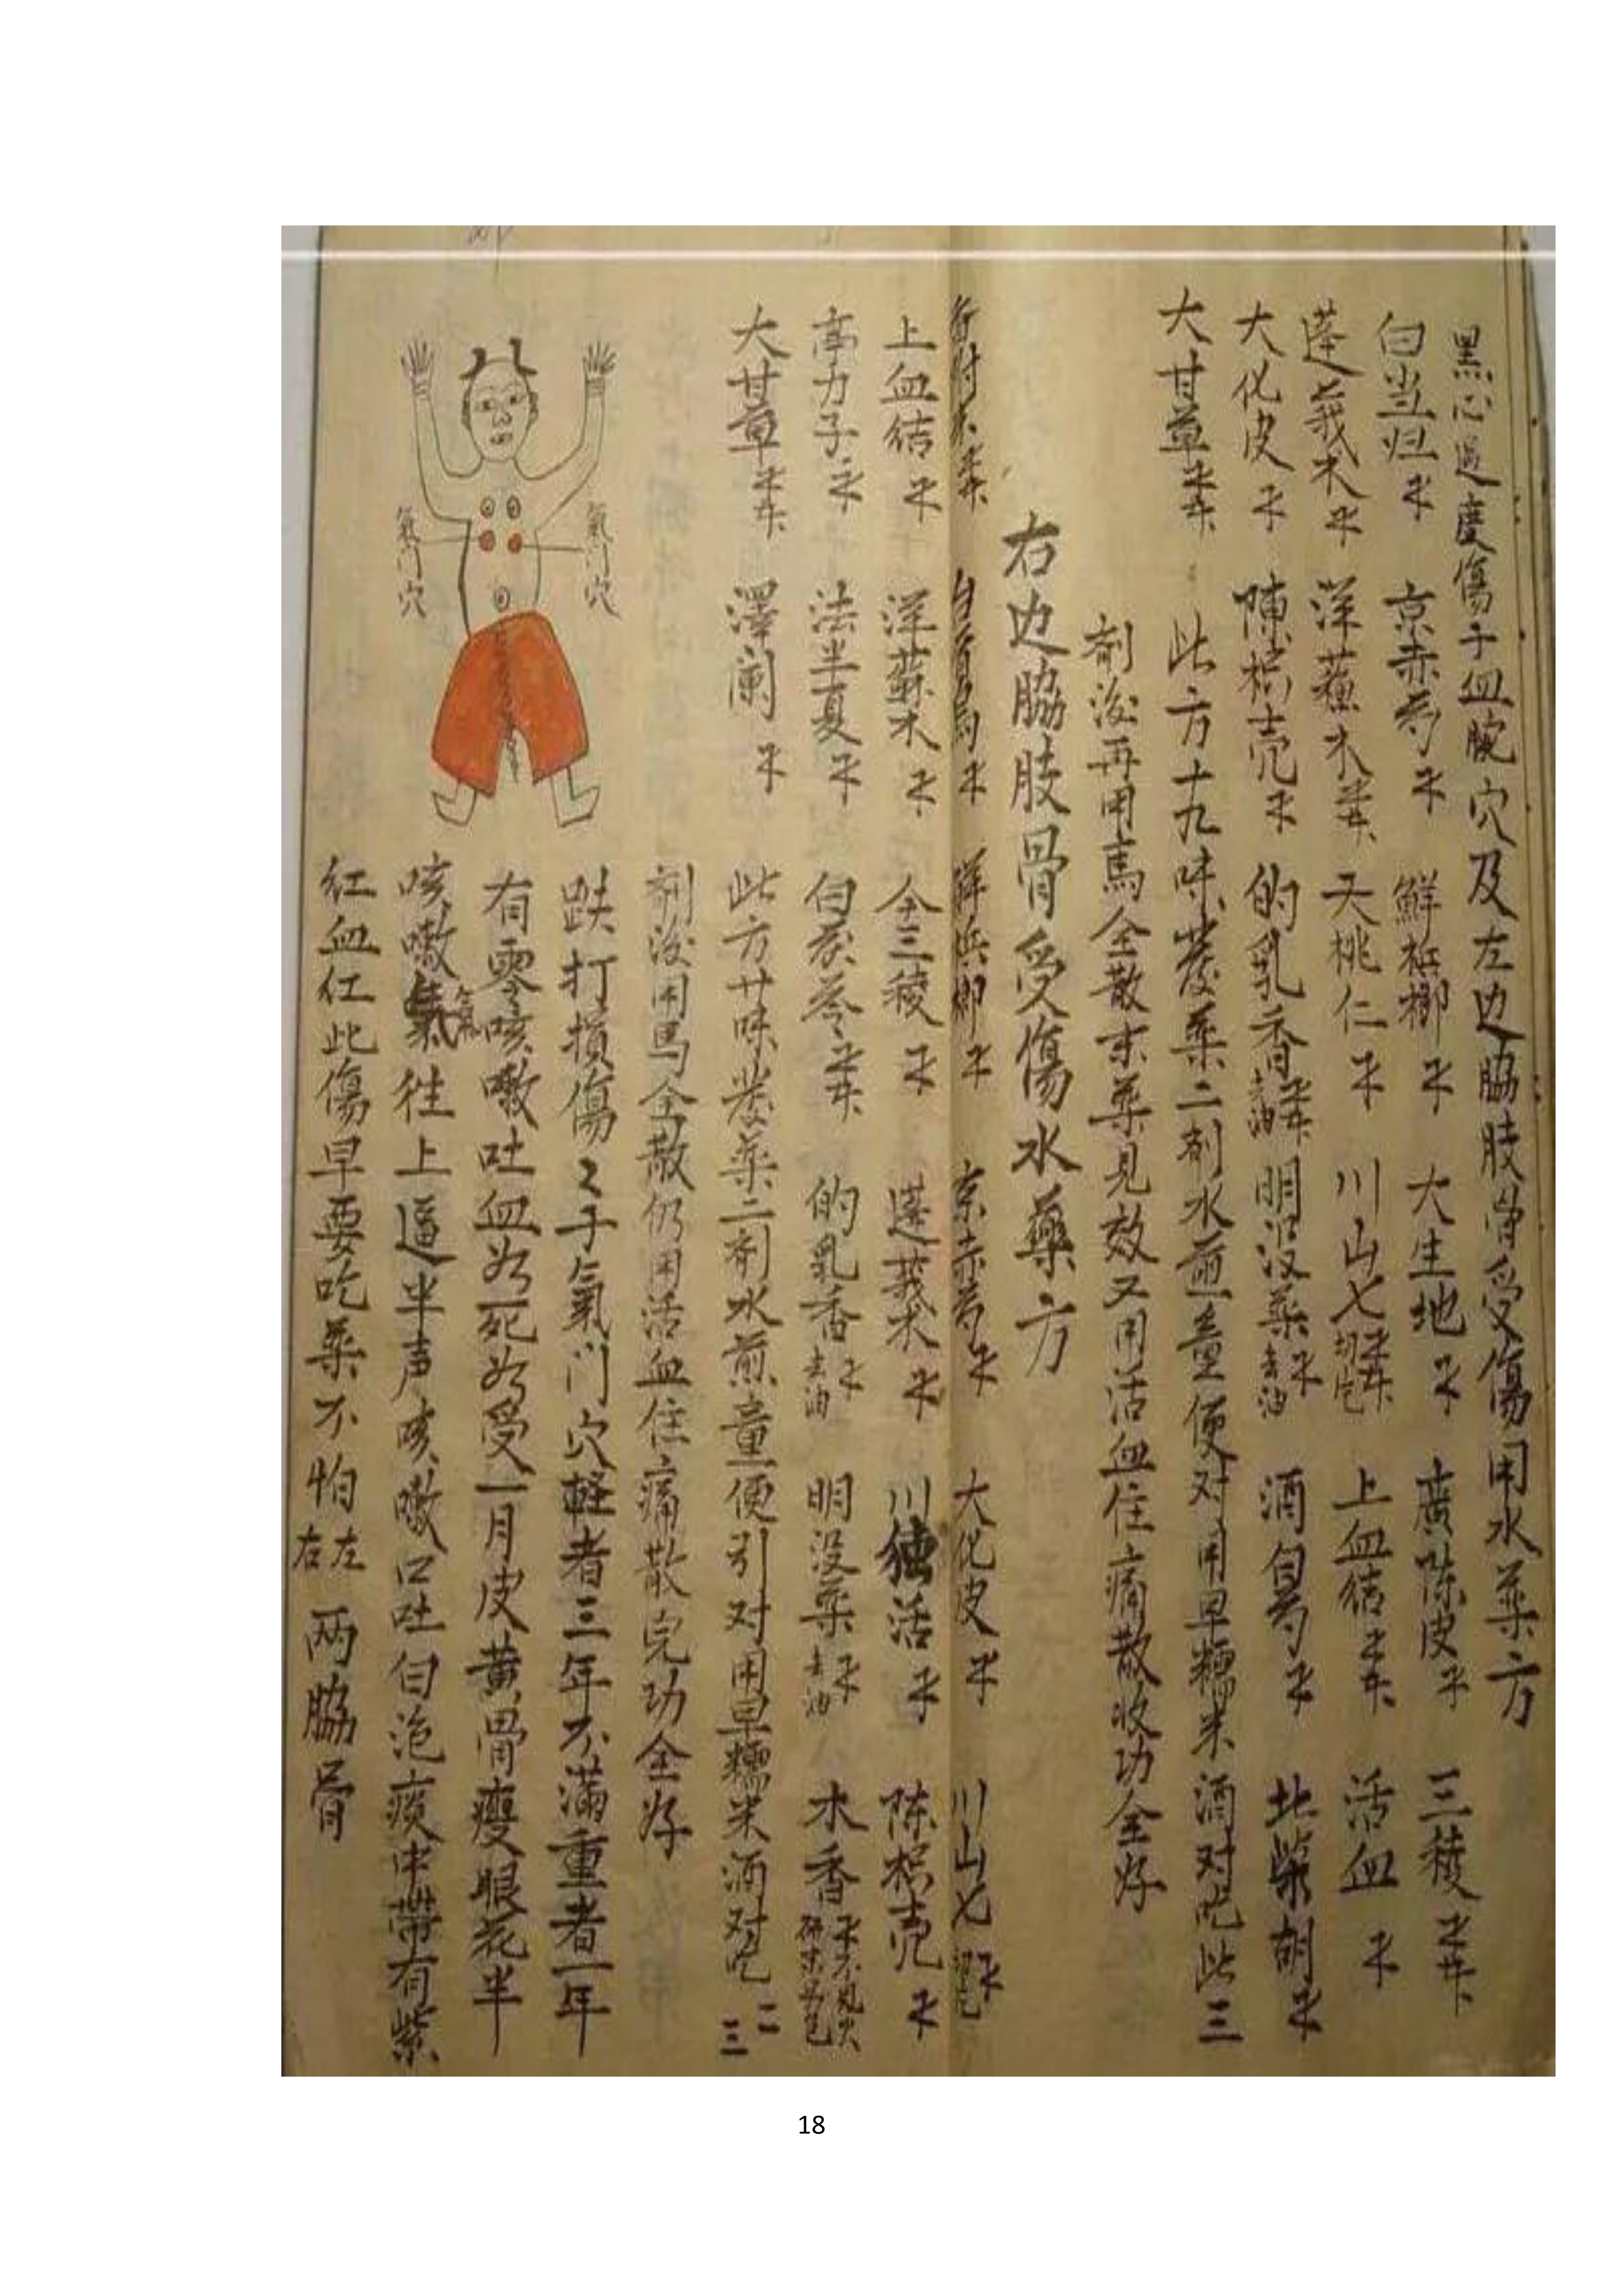 黑心過度傷于血腕穴及左边脇肢骨受傷用水薬方
白当归 京赤芍 鮮梹榔 大生地 廣陈皮 三稜
蓬莪术 洋蘓木 天桃仁 川山七 上血结 活血
大化皮 陳枳壳 的乳香 去油 明没薬 去油 酒白芍 北柴胡
大甘草 此方十九味 薬二剂水煎童便对用早糯米酒对吃此三
剂後再用馬全散末薬見效又用活血住痛散收功全好
右边脇肢骨受傷水藥方
京赤芍 大化皮 川山七
上血结 洋蘇木 全三稜 蓬莪术 川独活 陈枳壳
亭力子 法半夏 白茯苓 的乳香 去油 明没薬 去油 木香
大甘草 澤阑 此方廿味 薬二剂水煎童便引对用早糯米酒对吃 二三
剂後用馬全散仍用活血住痛散完功全好
跌打損傷〻于氣门穴軽者三年不滿重者一年
有零咳嗽吐血为死为受一月皮黄骨瘦眼花半
咳嗽氣往上逼半声咳嗽口吐白泡痰中帶有紫
红血仁此傷早要吃薬不怕左右两脇骨
氣门穴
氣门穴
18